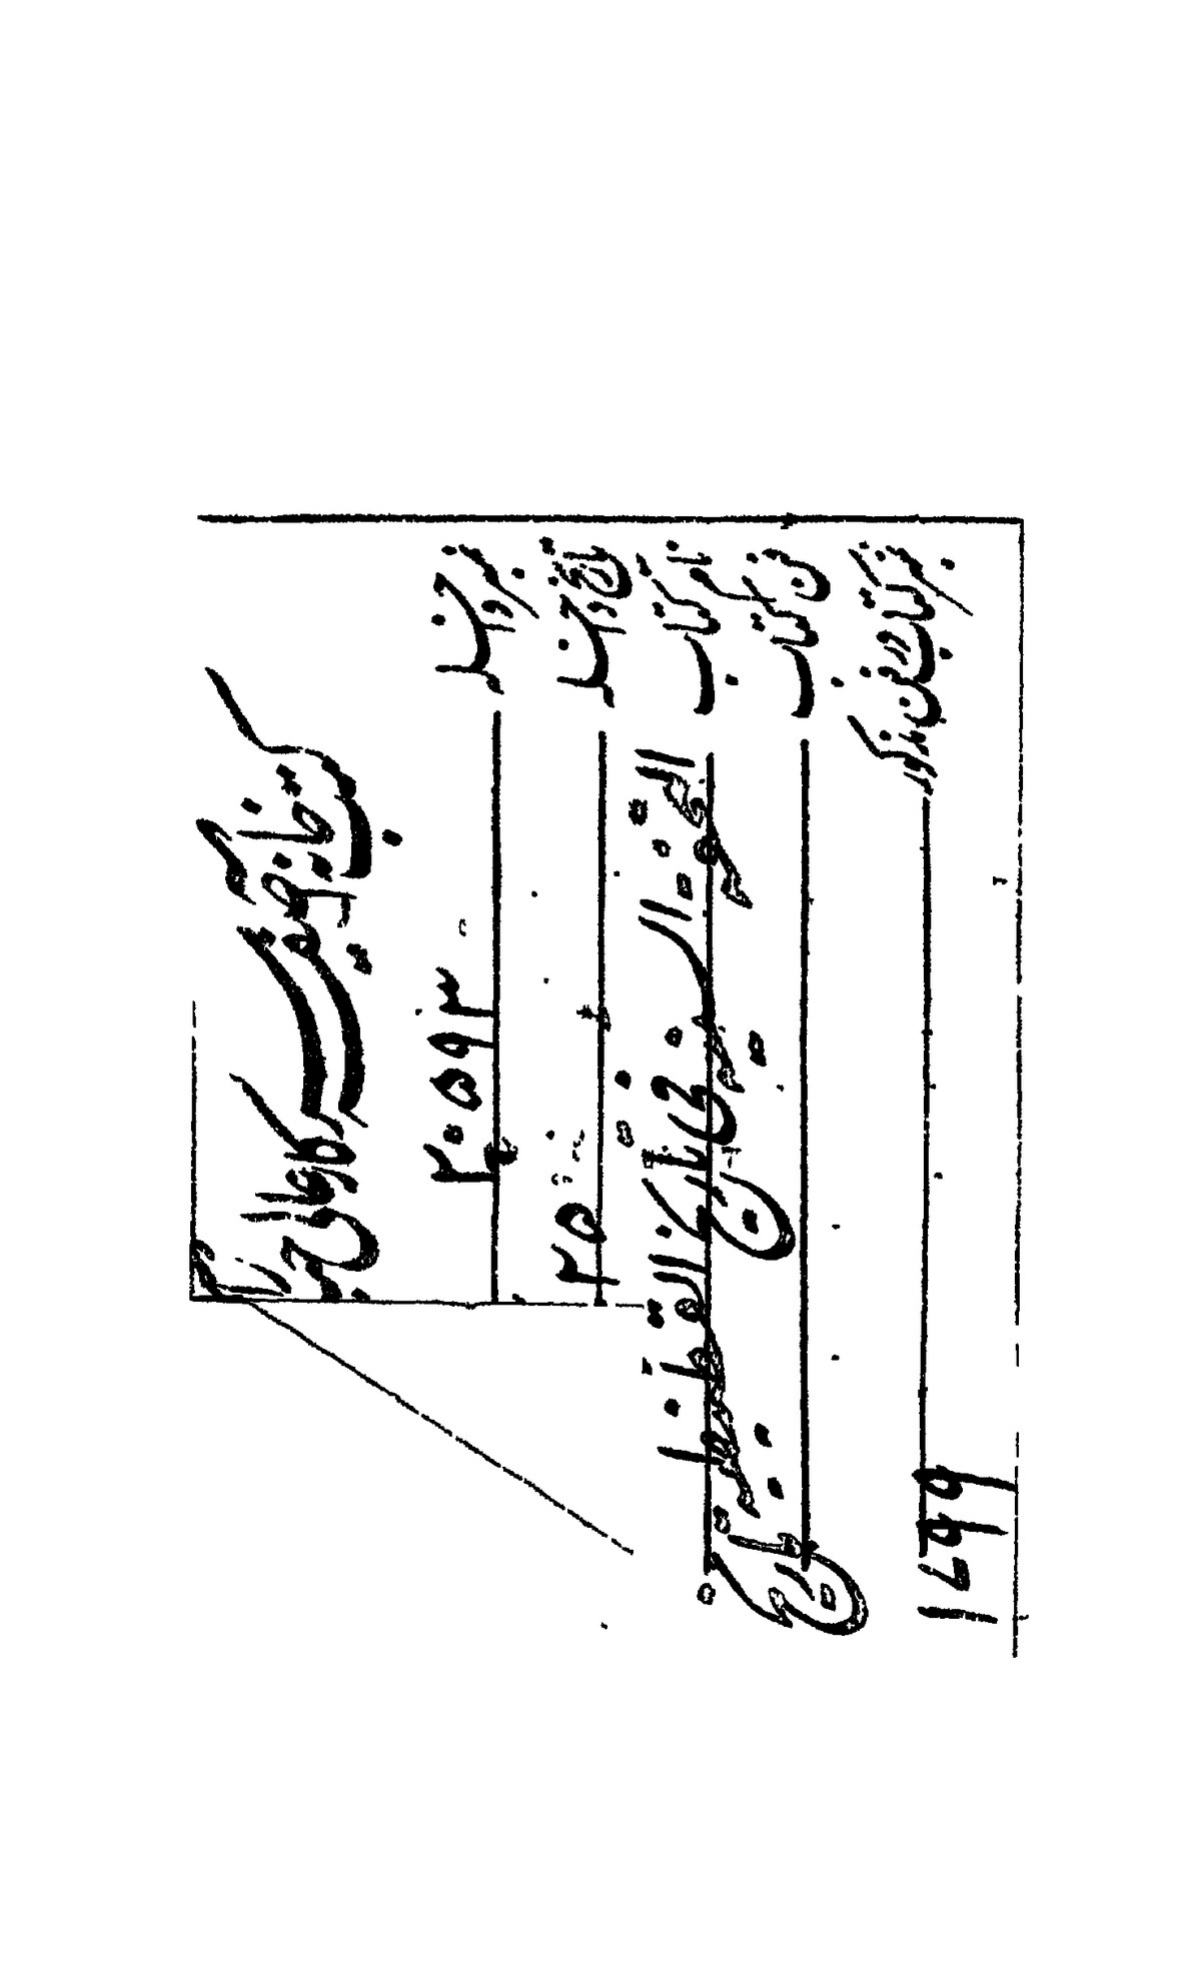 کتب خانہ آصفیہ سرکار عالی
نمبر داخلہ ۲۰۵۹۳
تاریخ داخلہ ۲۵
نام کتاب التحفة السنية في تاريخ القسطنطينية
فن کتاب تاریخ
نمبر کتاب در فن مذکور